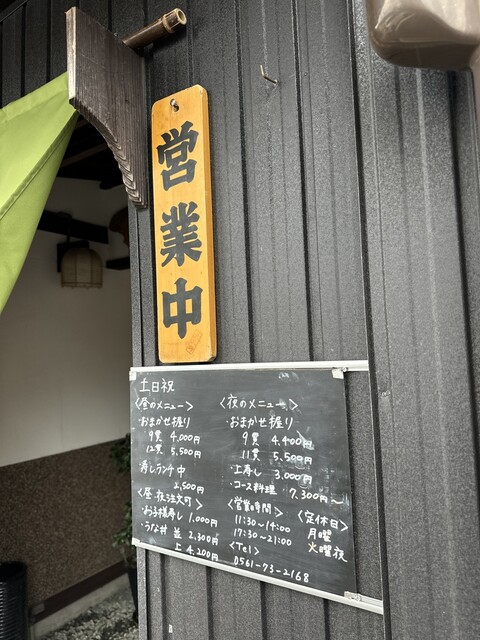 営業中
土日祝
〈昼のメニュー〉
・おまかせ握り
9貫 4,000円
12貫 5,500円
・寿しランチ 中
2,500円
〈昼夜注文可〉
・お子様寿し 1,000円
・うな丼 並 2,300円
上 4,200円
〈夜のメニュー〉
・おまかせ握り
9貫 4,400円
11貫 5,500円
・上寿し 3,000円
・コース料理 7,300円〜
〈営業時間〉
11:30〜14:00
17:30〜21:00
〈Tel〉
0561-73-2168
〈定休日〉
月曜
火曜夜